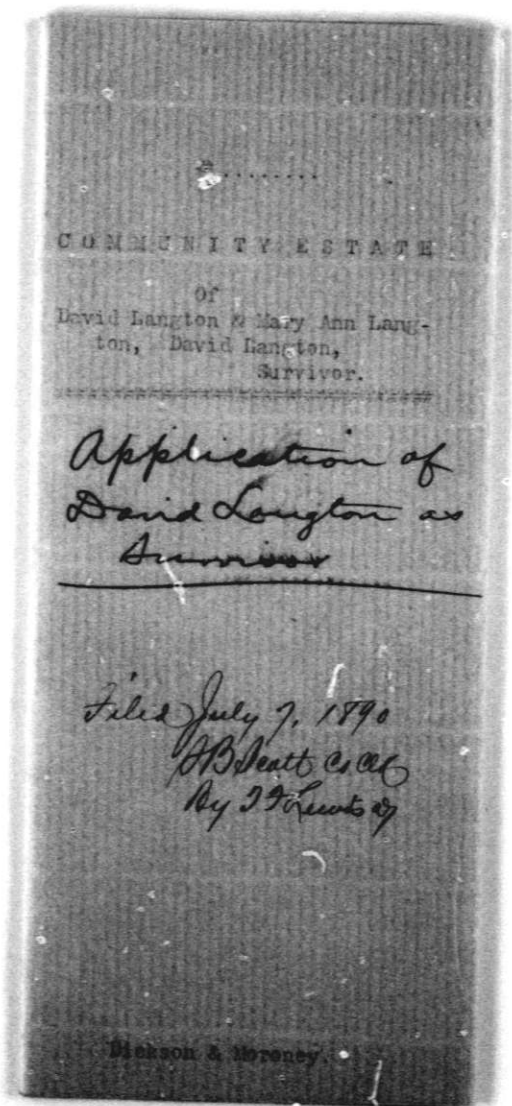 COMMUNITY ESTATE
Of
David Langton & Mary Ann Lang-
ton, David Langton,
Survivor.
Application of
David Langton as
Survivor
Filed July 7, 1890
Scott Co Clk
By Lewis Dy
Dickson & Moroney.